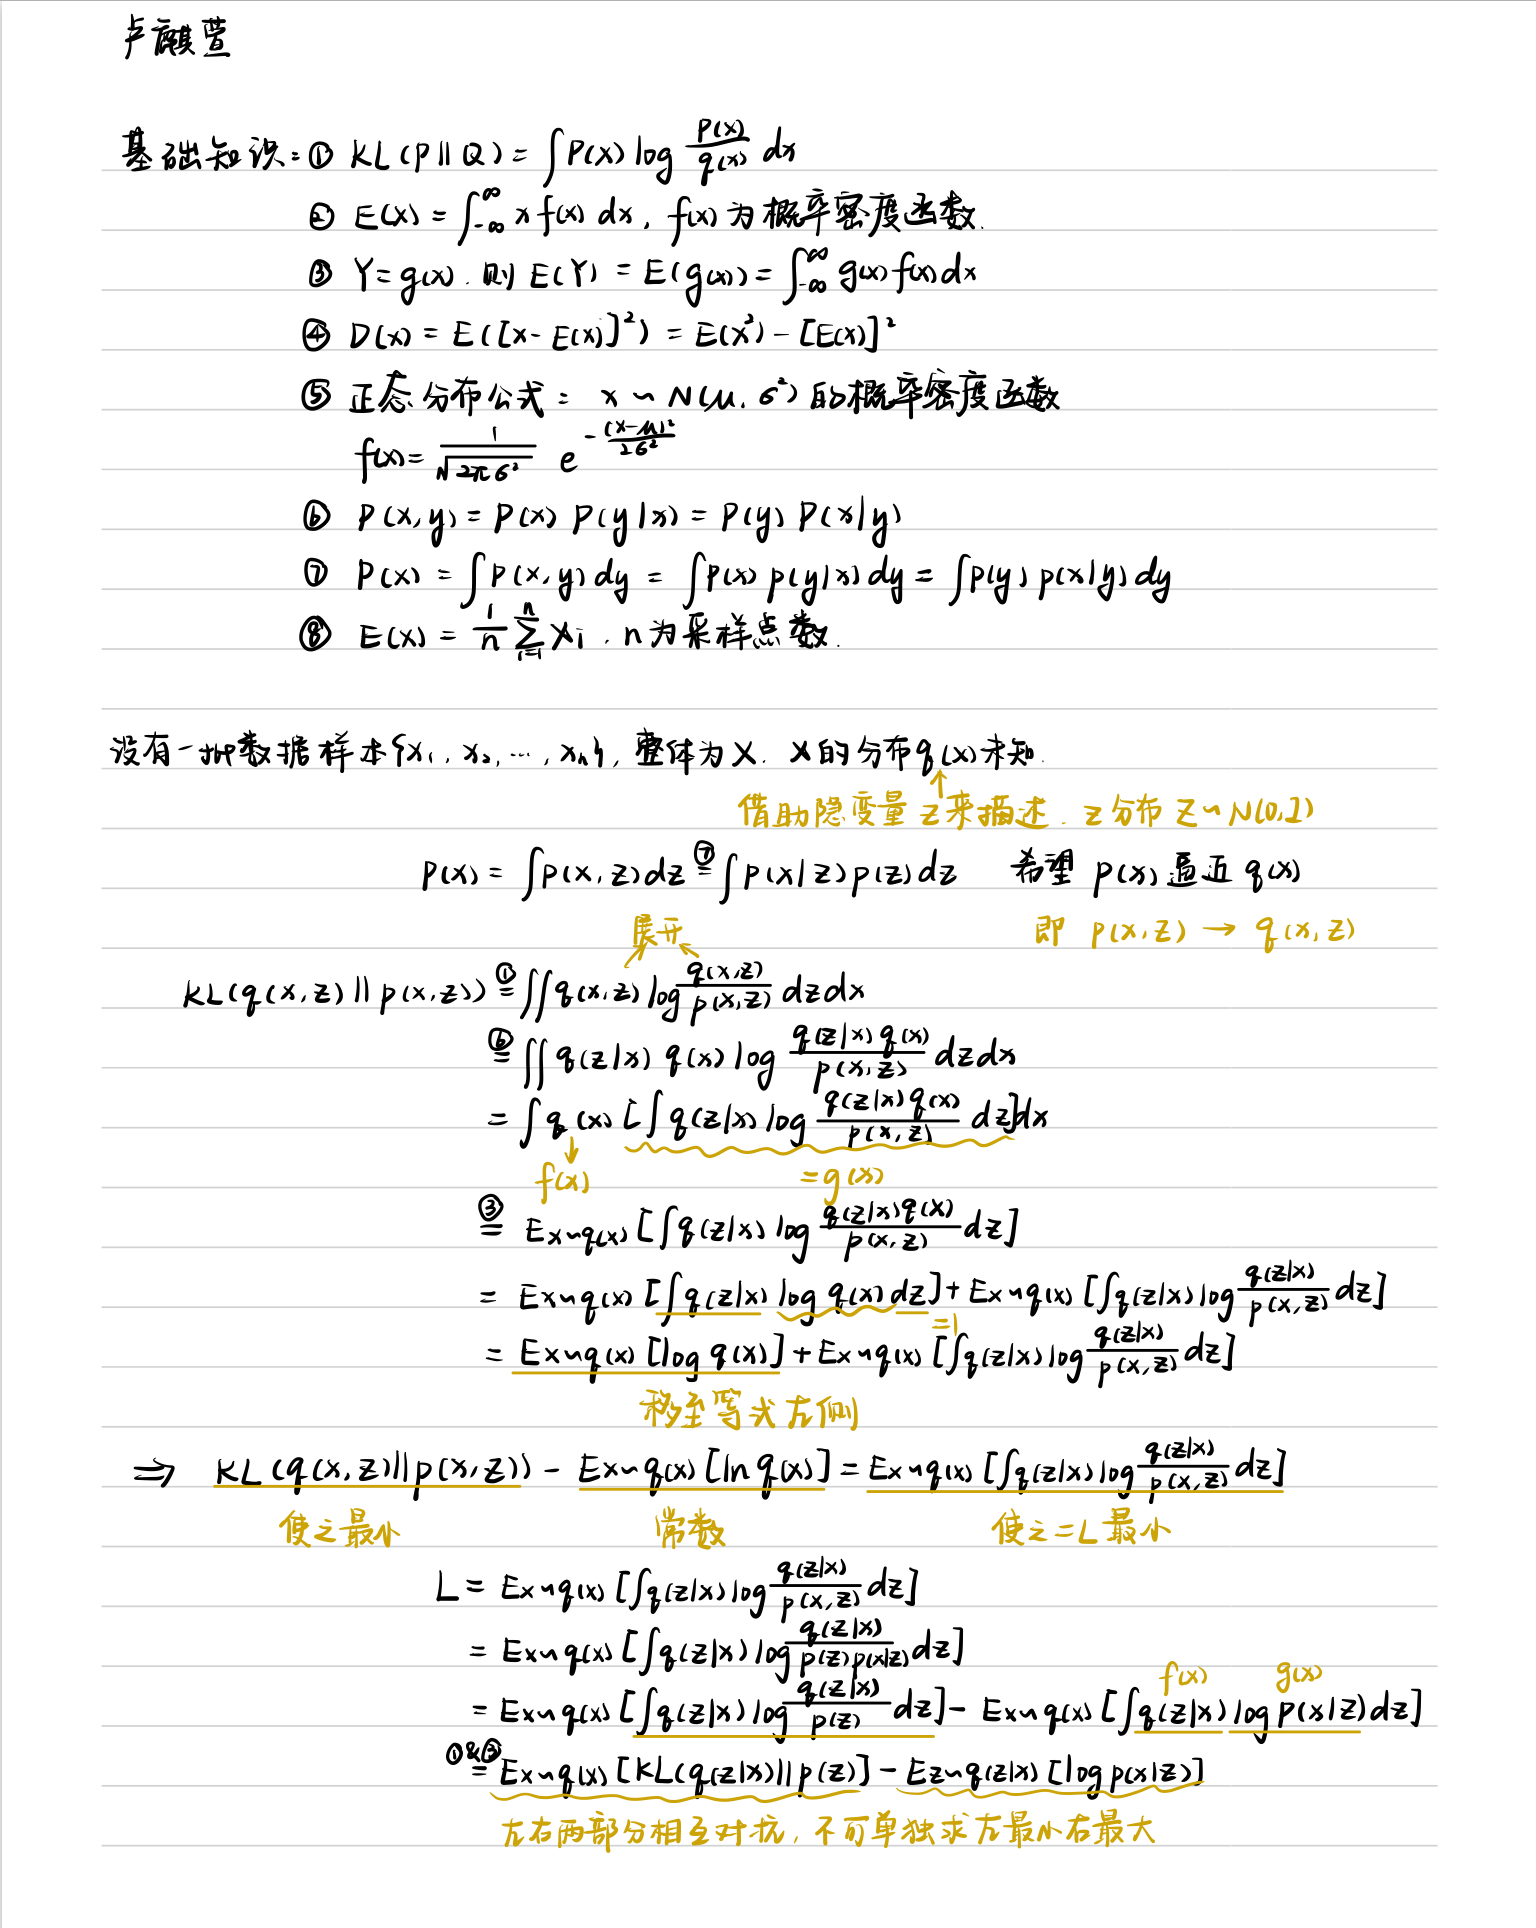 卢麒萱
基础知识：① KL(P||Q) = ∫P(x) log P(x)/q(x) dx
② E(X) = ∫_{-∞}^{∞} x f(x) dx, f(x)为概率密度函数.
③ Y=g(x). 则 E(Y) = E(g(x)) = ∫_{-∞}^{∞} g(x) f(x) dx
④ D(x) = E([x-E(x)]²) = E(x²) - [E(x)]²
⑤ 正态分布公式： x ~ N(μ, σ²) 的概率密度函数
f(x) = 1/√(2πσ²) e^{-(x-μ)²/2σ²}
⑥ P(x,y) = P(x) P(y|x) = P(y) P(x|y)
⑦ P(x) = ∫P(x,y) dy = ∫P(x) p(y|x) dy = ∫P(y) p(x|y) dy
⑧ E(x) = 1/n Σ_{i=1}^{n} Xi . n为采样点数.
设有一批数据样本{x₁, x₂, ..., xₙ}, 整体为X. X的分布q(x)未知.
↑
借助隐变量Z来描述. Z分布 Z~N(0,I)
P(x) = ∫p(x,z) dz ⑦= ∫p(x|z) p(z) dz 希望 p(x) 逼近 q(x)
展开 即 p(x,z) → q(x,z)
KL(q(x,z)||p(x,z)) ①= ∫∫q(x,z) log q(x,z)/p(x,z) dzdx
⑥= ∫∫ q(z|x) q(x) log q(z|x)q(x)/p(x,z) dzdx
= ∫q(x) [∫q(z|x) log q(z|x)q(x)/p(x,z) dz]dx
↓
f(x) =g(x)
③= Ex~q(x) [∫q(z|x) log q(z|x)q(x)/p(x,z) dz]
= Ex~q(x) [∫q(z|x) log q(x) dz] + Ex~q(x) [∫q(z|x) log q(z|x)/p(x,z) dz]
=1
= Ex~q(x) [log q(x)] + Ex~q(x) [∫q(z|x) log q(z|x)/p(x,z) dz]
移至等式左侧
⇒ KL(q(x,z)||p(x,z)) - Ex~q(x) [ln q(x)] = Ex~q(x) [∫q(z|x) log q(z|x)/p(x,z) dz]
使之最小 常数 使之=L最小
L = Ex~q(x) [∫q(z|x) log q(z|x)/p(x,z) dz]
= Ex~q(x) [∫q(z|x) log q(z|x)/p(z)p(x|z) dz]
f(x) g(x)
= Ex~q(x) [∫q(z|x) log q(z|x)/p(z) dz] - Ex~q(x) [∫q(z|x) log p(x|z) dz]
①&③= Ex~q(x) [KL(q(z|x)||p(z)] - Ez~q(z|x) [log p(x|z)]
左右两部分相互对抗, 不可单独求左最小右最大